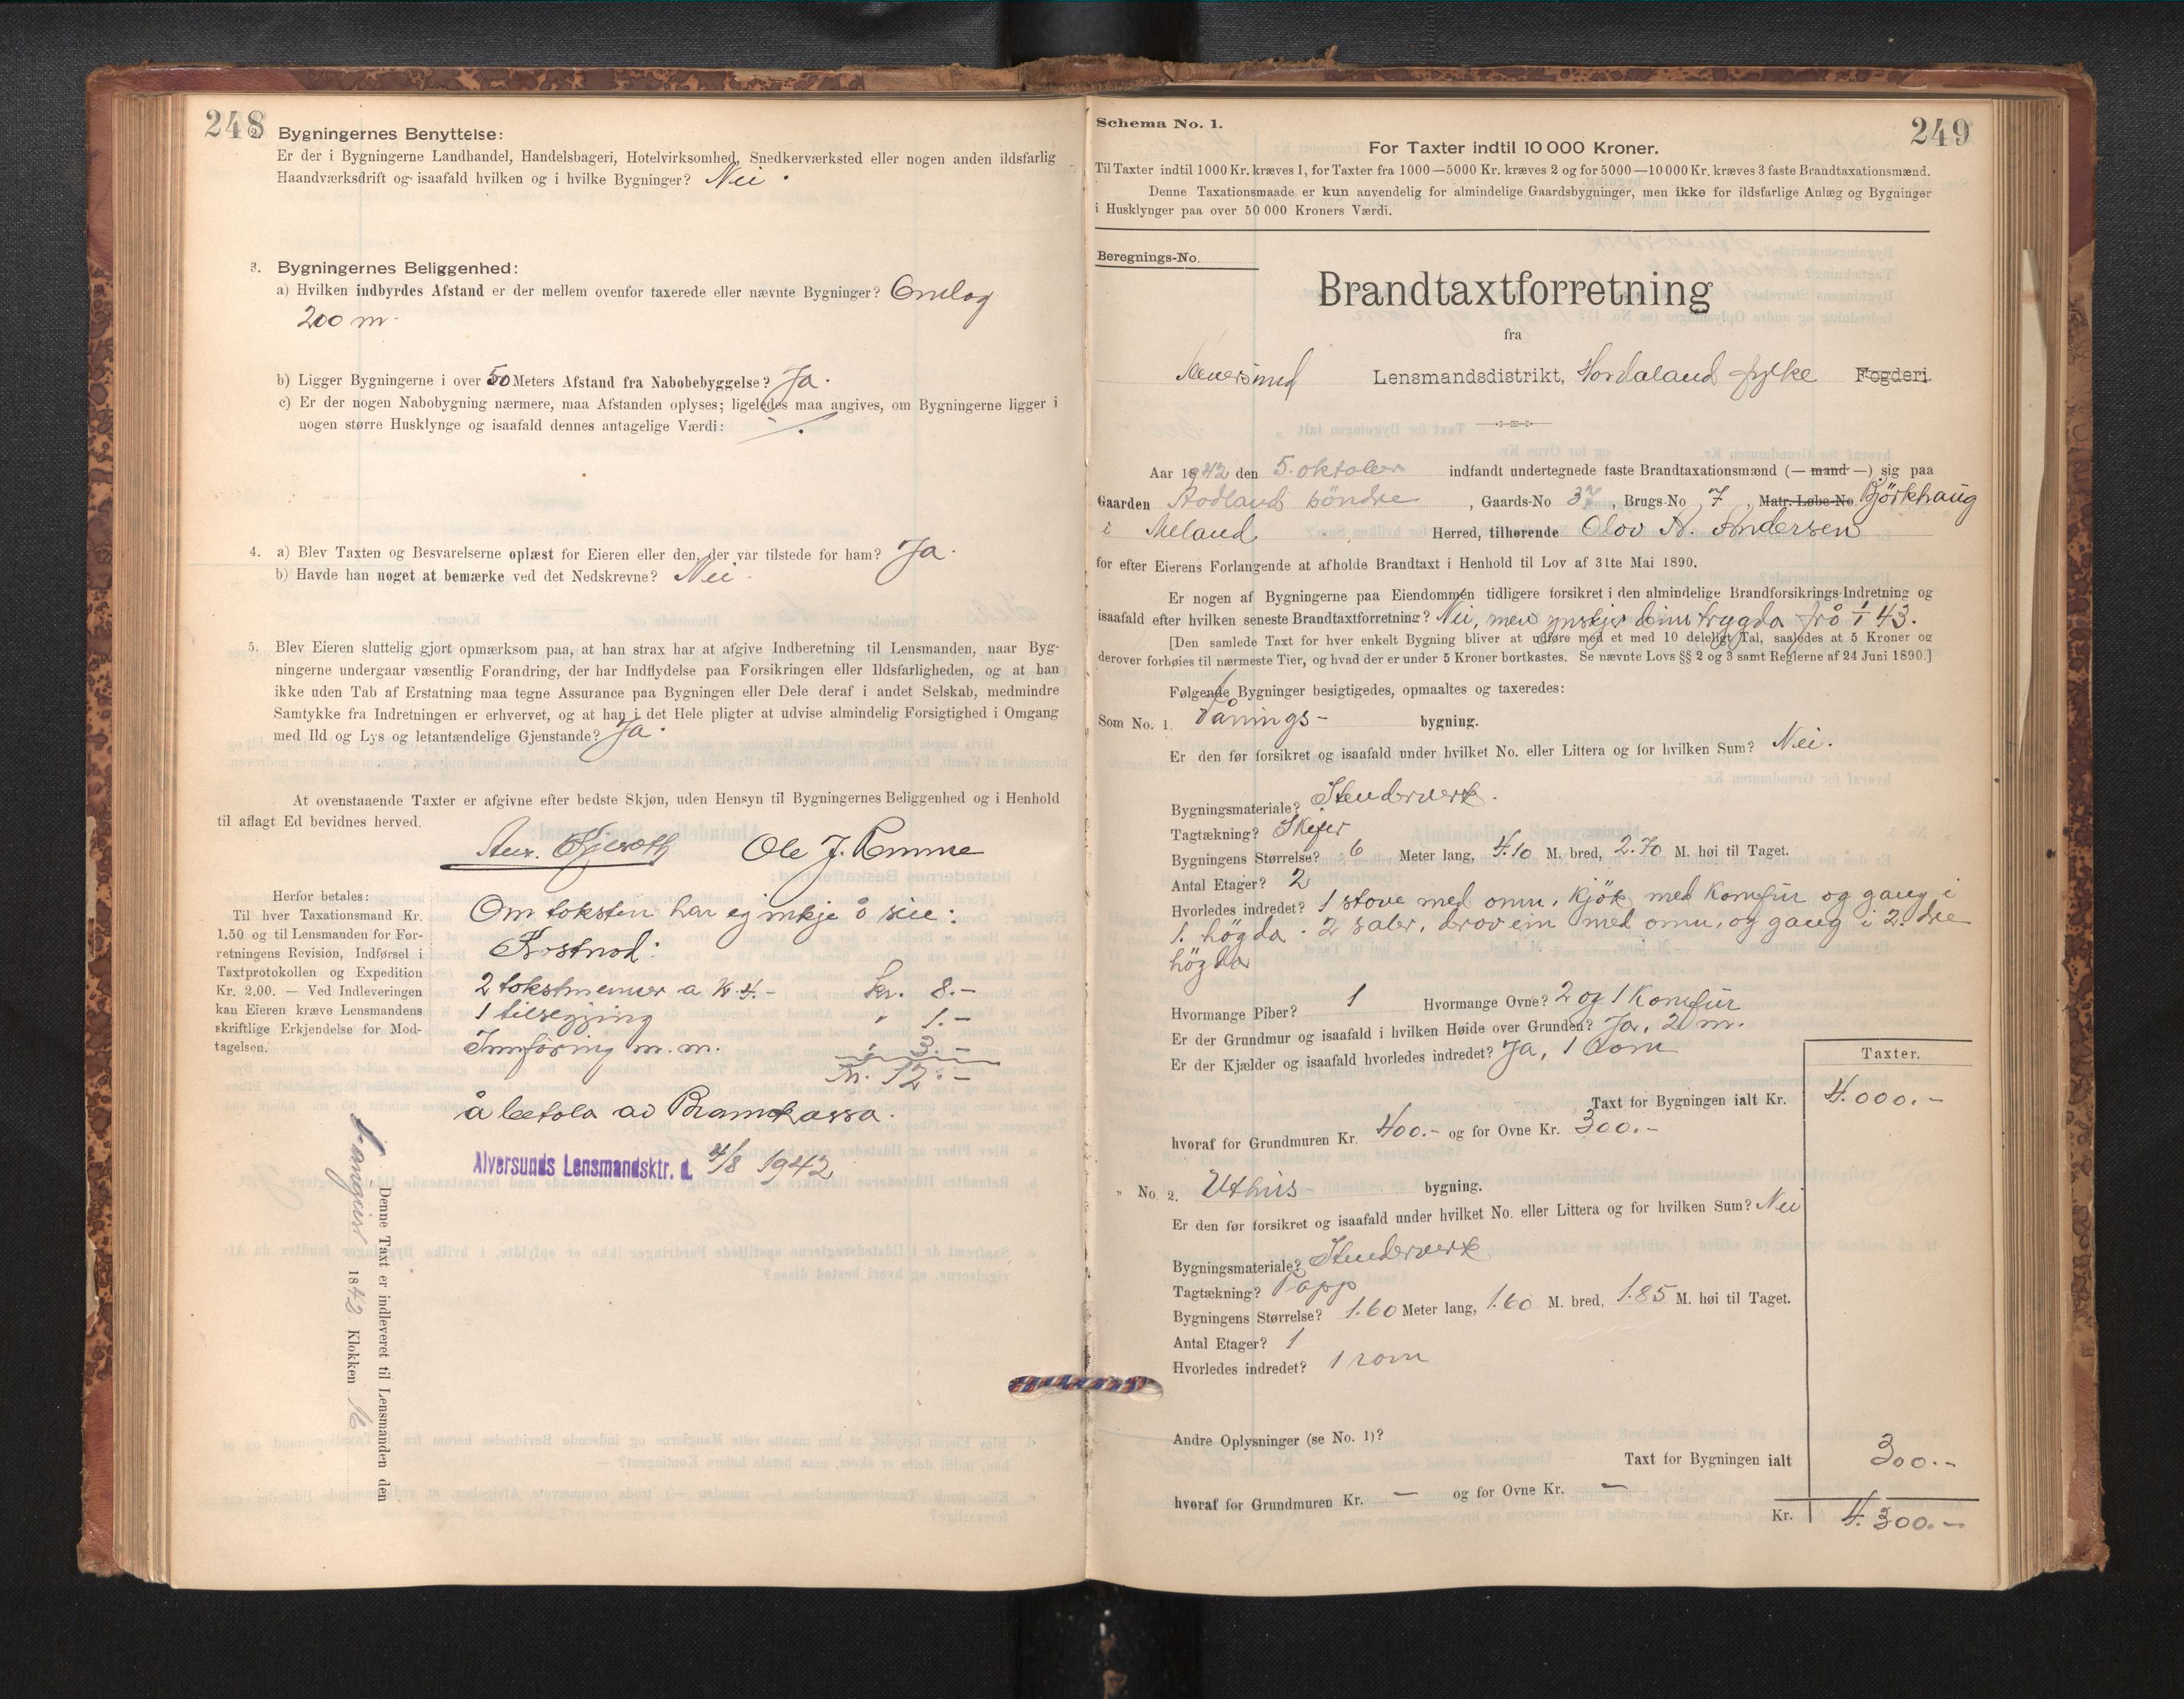 248
2. Bygningernes Benyttelse:
Er der i Bygningerne Landhandel, Handelsbageri, Hotelvirksomhed, Snedkerværksted eller nogen anden ildsfarlig
Haandværksdrift og isaafald hvilken og i hvilke Bygninger? Nei.
3. Bygningernes Beliggenhed:
a) Hvilken indbyrdes Afstand er der mellem ovenfor taxerede eller nævnte Bygninger? Omlag
200 m.
b) Ligger Bygningerne i over 50 Meters Afstand fra Nabobebyggelse? Ja.
c) Er der nogen Nabobygning nærmere, maa Afstanden oplyses; ligeledes maa angives, om Bygningerne ligger i
nogen større Husklynge og isaafald dennes antagelige Værdi:
4. a) Blev Taxten og Besvarelserne oplæst for Eieren eller den, der var tilstede for ham? Ja.
b) Havde han noget at bemærke ved det Nedskrevne? Nei.
5. Blev Eieren sluttelig gjort opmærksom paa, at han strax har at afgive Indberetning til Lensmanden, naar Byg-
ningerne undergaar væsentlig Forandring, der har Indflydelse paa Forsikringen eller Ildsfarligheden, og at han
ikke uden Tab af Erstatning maa tegne Assurance paa Bygningen eller Dele deraf i andet Selskab, medmindre
Samtykke fra Indretningen er erhvervet, og at han i det Hele pligter at udvise almindelig Forsigtighed i Omgang
med Ild og Lys og letantændelige Gjenstande? Ja.
At ovenstaaende Taxter er afgivne efter bedste Skjøn, uden Hensyn til Bygningernes Beliggenhed og i Henhold
til aflagt Ed bevidnes herved.
Ole J.
Herfor betales:
Til hver Taxationsmand Kr.
1.50 og til Lensmanden for For-
retningens Revision, Indførsel i
Taxtprotokollen og Expedition
Kr. 2.00. — Ved Indleveringen
kan Eieren kræve Lensmandens
skriftlige Erkjendelse for Mod-
tagelsen.
Om toksten har eg inkje å seie:
Kostnad:
2 tokstmenner a kr. 4.- kr. 8.-
1 tilsegjing " 1.-
Innføring m.m. " 3.-
Kr. 12.-
å betala av Brannkassa.
Alversunds Lensmandsktr. d. 4/8 1942
Denne Taxt er indleveret til Lensmanden den
1843 Klokken 16
249
Schema No. 1.
For Taxter indtil 10 000 Kroner.
Til Taxter indtil 1000 Kr. kræves 1, for Taxter fra 1000—5000 Kr. kræves 2 og for 5000—10 000 Kr. kræves 3 faste Brandtaxationsmænd.
Denne Taxationsmaade er kun anvendelig for almindelige Gaardsbygninger, men ikke for ildsfarlige Anlæg og Bygninger
i Husklynger paa over 50 000 Kroners Værdi.
Beregnings-No.
Brandtaxtforretning
fra
Lensmandsdistrikt, Hordaland fylke Fogderi.
Aar 1942 den 5. oktober indfandt undertegnede faste Brandtaxationsmænd (— mand —) sig paa
Gaarden Rodland söndre, Gaards-No 37, Brugs-No 7, Matr. Løbe-No. Björkhaug
i Meland Herred, tilhørende Olov N. Andersen
for efter Eierens Forlangende at afholde Brandtaxt i Henhold til Lov af 31te Mai 1890.
Er nogen af Bygningerne paa Eiendommen tidligere forsikret i den almindelige Brandforsikrings-Indretning og
isaafald efter hvilken seneste Brandtaxtforretning? Nei, men ynskjer frå 1/1 43.
[Den samlede Taxt for hver enkelt Bygning bliver at udføre med et med 10 deleligt Tal, saaledes at 5 Kroner og
derover forhøies til nærmeste Tier, og hvad der er under 5 Kroner bortkastes. Se nævnte Lovs §§ 2 og 3 samt Reglerne af 24 Juni 1890.]
Følgende Bygninger besigtigedes, opmaaltes og taxeredes:
Som No. 1. Vånings- bygning.
Er den før forsikret og isaafald under hvilket No. eller Littera og for hvilken Sum? Nei.
Bygningsmateriale? Stenderverk.
Tagtækning? Skifer
Bygningens Størrelse? 6 Meter lang, 4.10 M. bred, 2.70 M. høi til Taget.
Antal Etager? 2
Hvorledes indredet? 1 stove med omn, kjök med komfür og gang i
1. högda. 2 saler, drov ein med omn, og gang i 2. dre
högda
Hvormange Piber? 1 Hvormange Ovne? 2 og 1 Komfür
Er der Grundmur og isaafald i hvilken Høide over Grunden? Ja, 2 m.
Er der Kjælder og isaafald hvorledes indredet? Ja, 1 rom
Taxter.
Taxt for Bygningen ialt Kr. 4.000.-
hvoraf for Grundmuren Kr. 400.- og for Ovne Kr. 300.-
" No. 2. Uthus- bygning.
Er den før forsikret og isaafald under hvilket No. eller Littera og for hvilken Sum? Nei
Bygningsmateriale? Stenderverk
Tagtækning? Papp
Bygningens Størrelse? 1.60 Meter lang, 1.60 M. bred, 1.85 M. høi til Taget.
Antal Etager? 1
Hvorledes indredet? 1 rom
Andre Oplysninger (se No. 1)?
Taxt for Bygningen ialt 300.-
hvoraf for Grundmuren Kr. — og for Ovne Kr. —
Kr. 4.300.-